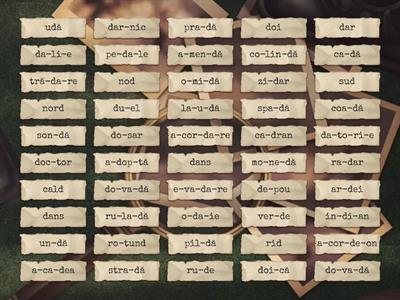 udă dar-nic pra-dă doi dar
da-li-e pe-da-le a-men-dă co-lin-dă ca-dă
tră-da-re nod o-mi-dă zi-dar sud
nord du-el la-u-dă spa-dă coa-dă
son-dă do-sar a-cor-da-re ca-dran da-to-ri-e
doc-tor a-dop-tă dans mo-ne-dă ra-dar
cald do-va-dă e-va-da-re de-pou ar-dei
dans ru-la-dă o-da-ie ver-de in-di-an
un-dă ro-tund pil-dă rid a-cor-de-on
a-ca-dea stra-dă ru-de doi-că do-va-dă